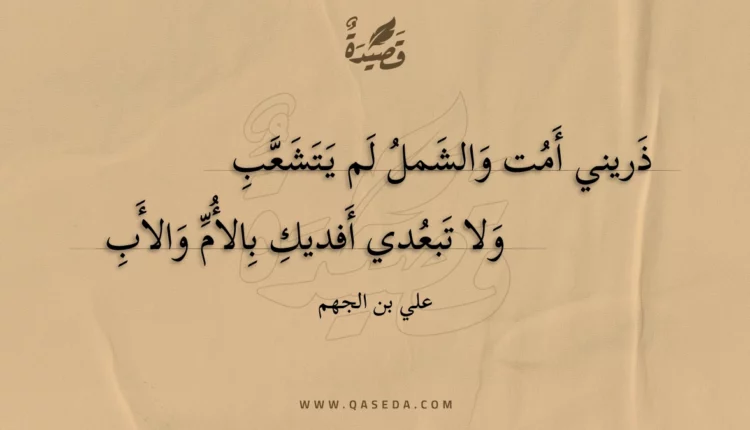 قَصِيدَةٌ
ذَريني أَمُت وَالشَملُ لَم يَتَشَعَّبِ
وَلا تَبعُدي أَفديكِ بِالأُمِّ وَالأَبِ
علي بن الجهم
WWW.QASEDA.COM